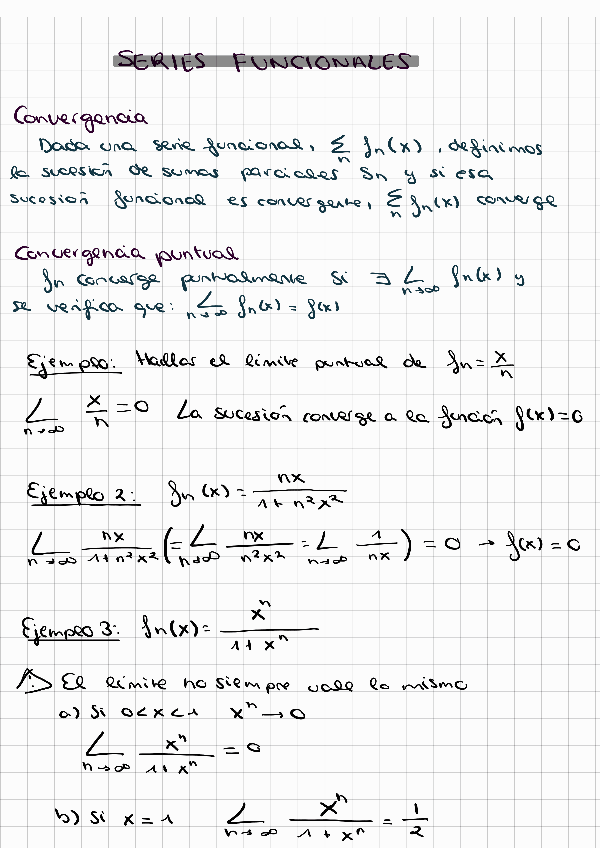 SERIES FUNCIONALES
Convergencia
Dada una serie funcional, Σₙ fn(x), definimos
la sucesión de sumas parciales Sn y si esa
sucesión funcional es convergente, Σₙ fn(x) converge
Convergencia puntual
fn converge puntualmente si ∃ L n→∞ fn(x) y
se verifica que: L n→∞ fn(x) = f(x)
Ejemplo: Hallar el límite puntual de fn = x/n
L n→∞ x/n = 0 La sucesión converge a la función f(x)=0
Ejemplo 2: fn(x) = nx/(1+n²x²)
L n→∞ nx/(1+n²x²) (= L n→∞ nx/(n²x²) = L n→∞ 1/(nx)) = 0 → f(x) = 0
Ejemplo 3: fn(x) = xⁿ/(1+xⁿ)
⚠ El límite no siempre vale lo mismo
a) Si 0<x<1 xⁿ → 0
L n→∞ xⁿ/(1+xⁿ) = 0
b) Si x = 1 L n→∞ xⁿ/(1+xⁿ) = 1/2